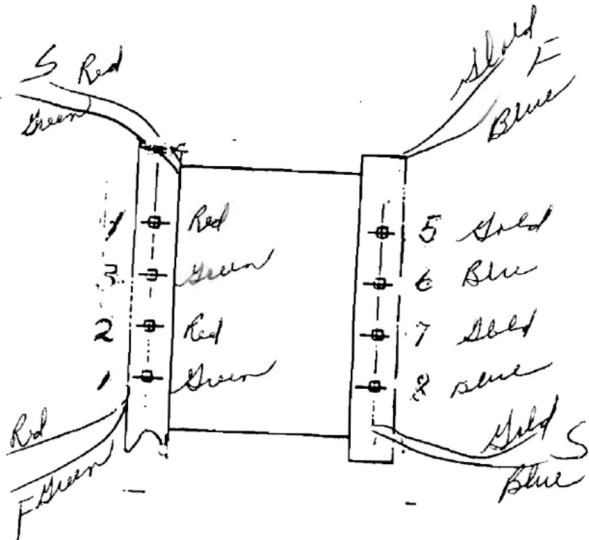 S Red
Green
Gold
F
Blue
4 Red
3 Green
2 Red
1 Green
5 Gold
6 Blue
7 Gold
8 Blue
Red
F Green
Gold S
Blue